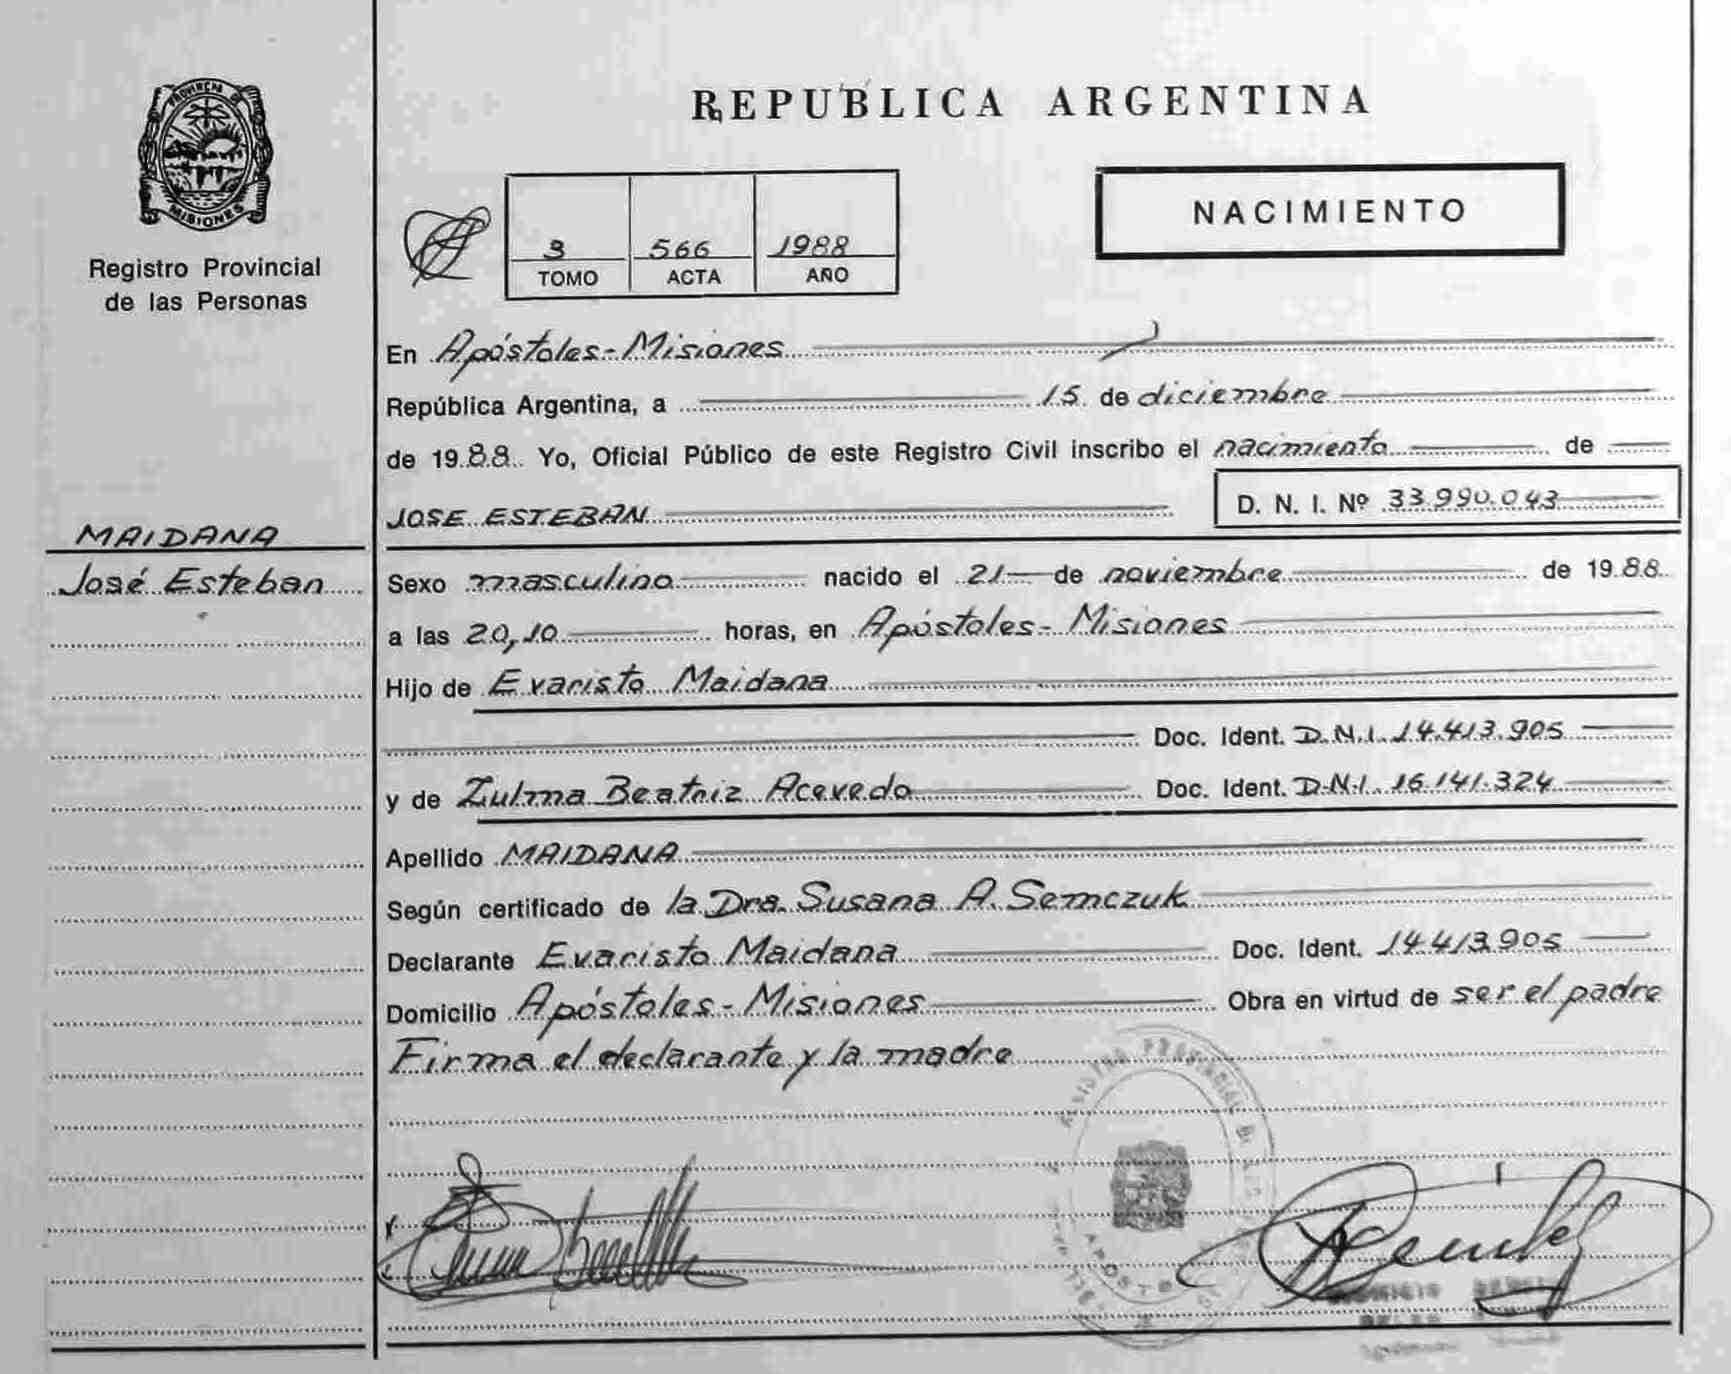 PROVINCIA DE
MISIONES
Registro Provincial
de las Personas
MAIDANA
José Esteban
REPUBLICA ARGENTINA
NACIMIENTO
3 566 1988
TOMO ACTA AÑO
En Apóstoles - Misiones
República Argentina, a 15 de diciembre
de 1988 Yo, Oficial Público de este Registro Civil inscribo el nacimiento de
JOSE ESTEBAN D. N. I. Nº 33.990.043
Sexo masculino nacido el 21 de noviembre de 1988
a las 20,10 horas, en Apóstoles - Misiones
Hijo de Evaristo Maidana
Doc. Ident. D.N.I. 14.413.905
y de Zulma Beatriz Acevedo Doc. Ident. D.N.I. 16.141.324
Apellido MAIDANA
Según certificado de la Dra. Susana A. Semczuk
Declarante Evaristo Maidana Doc. Ident. 14.413.905
Domicilio Apóstoles - Misiones Obra en virtud de ser el padre
Firma el declarante y la madre